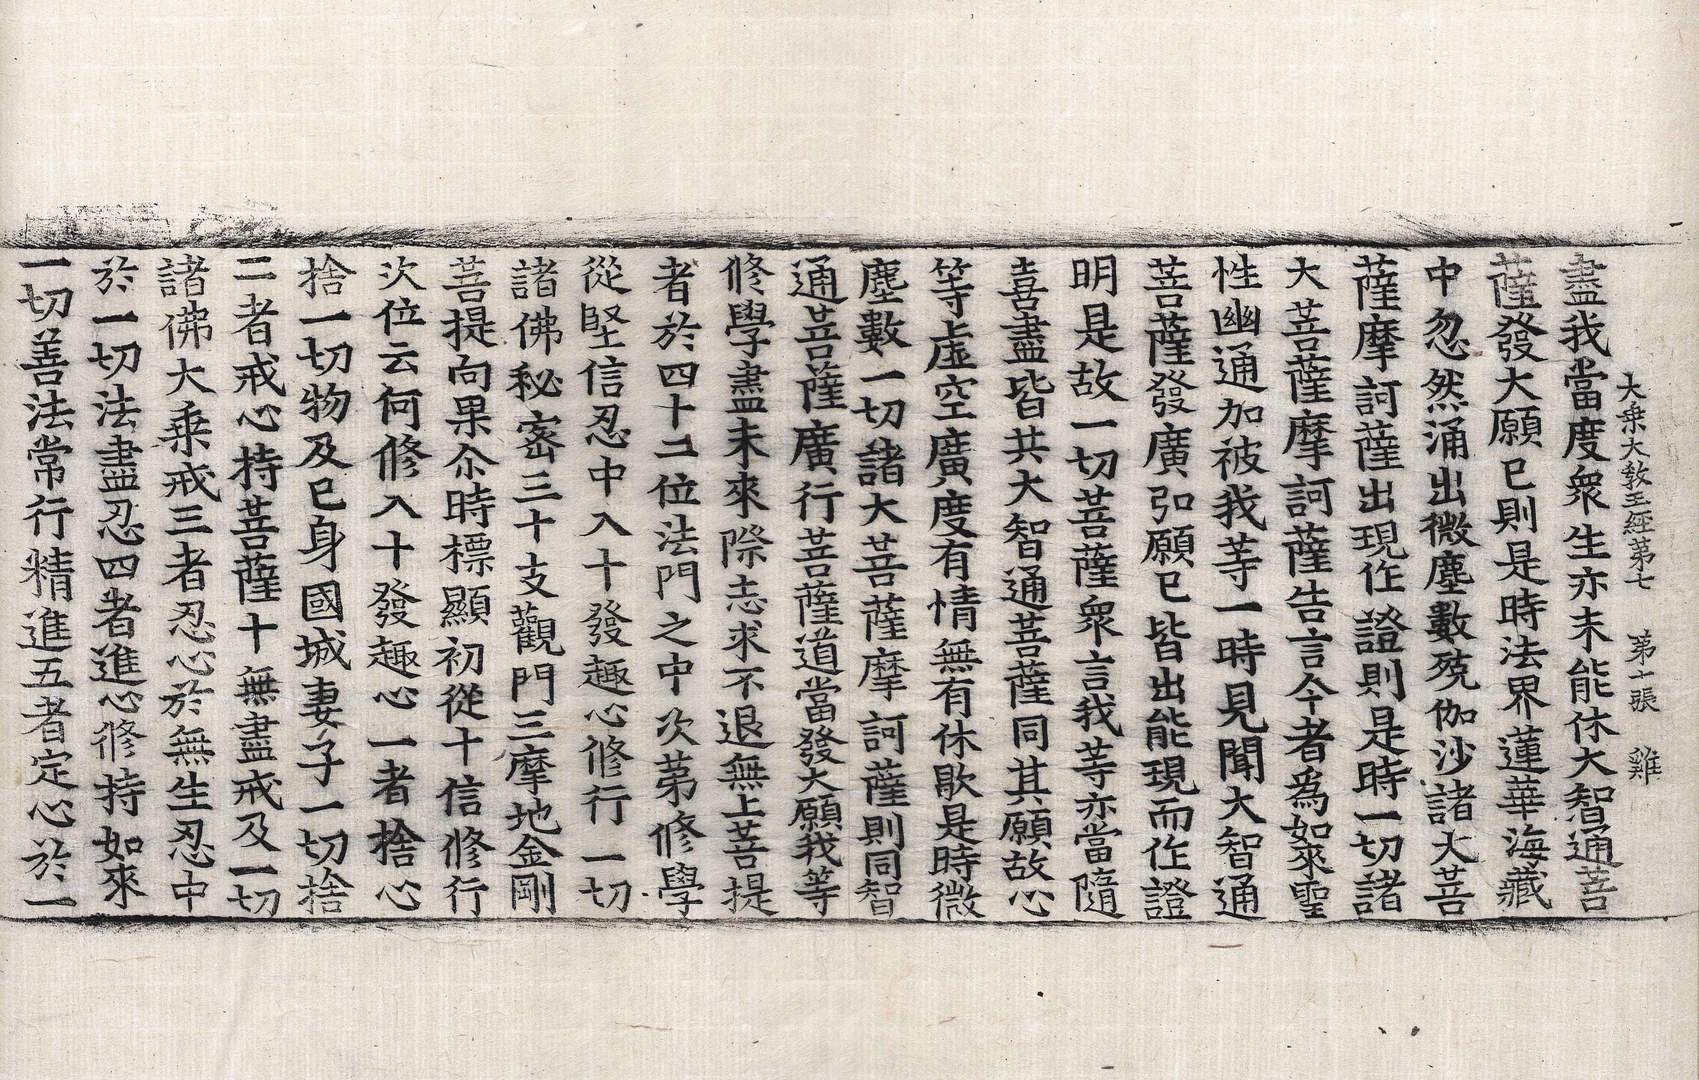 大乘大教王經第七　第十張　雞
盡我當度衆生亦未能休大智通菩
薩發大願已則是時法界蓮華海藏
中忽然涌出微塵數殑伽沙諸大菩
薩摩訶薩出現作證則是時一切諸
大菩薩摩訶薩告言今者爲如來聖
性幽通加被我等一時見聞大智通
菩薩發廣弘願已皆出能現而作證
明是故一切菩薩衆言我等亦當隨
喜盡皆共大智通菩薩同其願故心
等虛空廣度有情無有休歇是時微
塵數一切諸大菩薩摩訶薩則同智
通菩薩廣行菩薩道當發大願我等
修學盡未來際志求不退無上菩提
者於四十二位法門之中次苐修學
從堅信忍中入十發趣心修行一切
諸佛秘密三十支觀門三摩地金剛
菩提向果尒時標顯初從十信修行
次位云何修入十發趣心一者捨心
捨一切物及已身國城妻子一切捨
二者戒心持菩薩十無盡戒及一切
諸佛大乘戒三者忍心於無生忍中
於一切法盡忍四者進心修持如來
一切善法常行精進五者定心於一